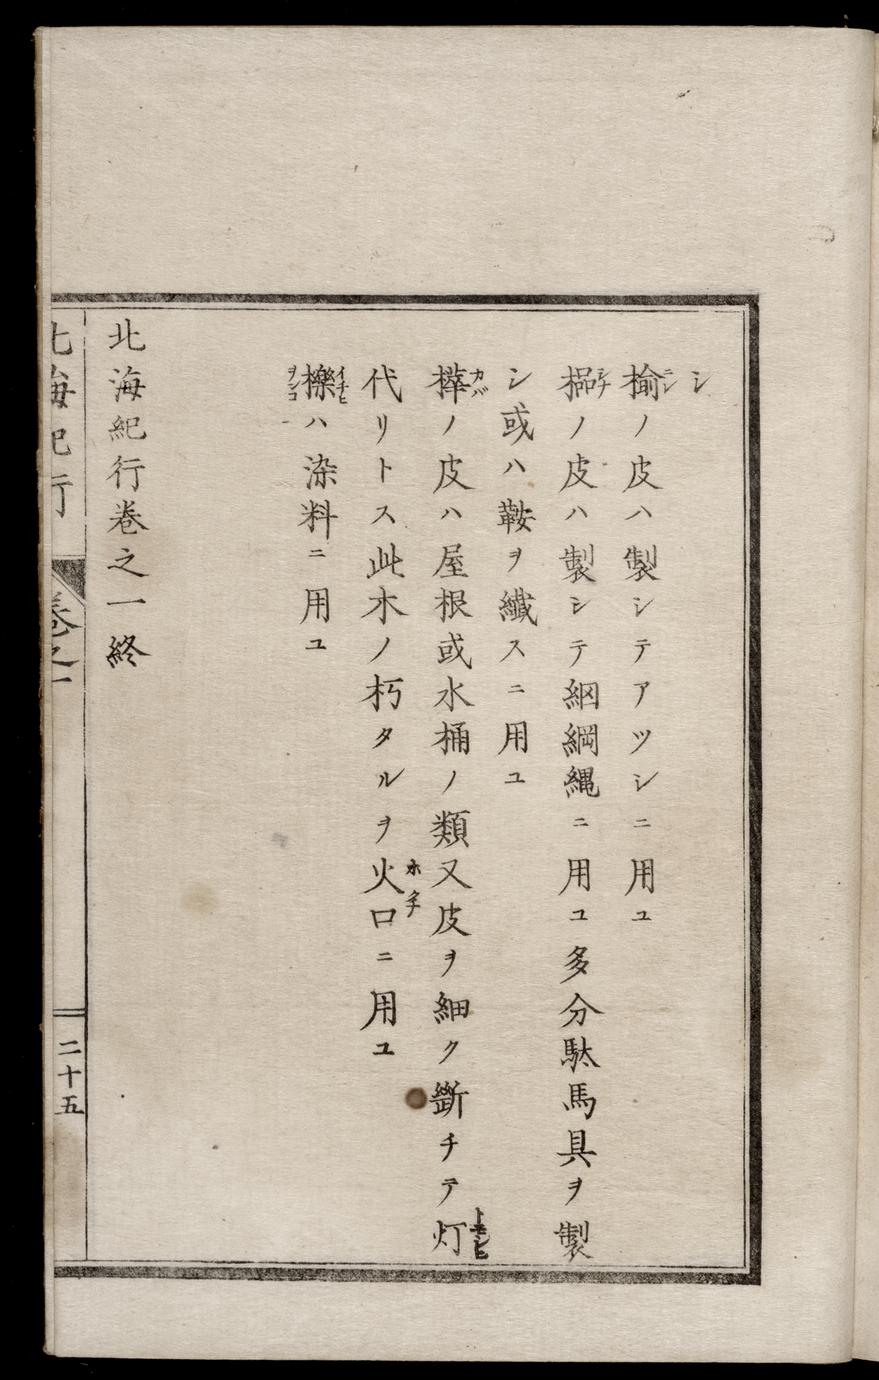 シ
楡ニレノ皮ハ製シテアツシニ用ユ
榀シナノ皮ハ製シテ網綱縄ニ用ユ多分駄馬具ヲ製
シ或ハ鞍ヲ繊スニ用ユ
樺カバノ皮ハ屋根或水桶ノ類又皮ヲ細ク断チテ灯トモシビ
代リトス此木ノ朽タルヲ火口ホクチニ用ユ
擽イチヒヲンコハ染料ニ用ユ
北海紀行巻之一終
北海紀行 巻之一 二十五